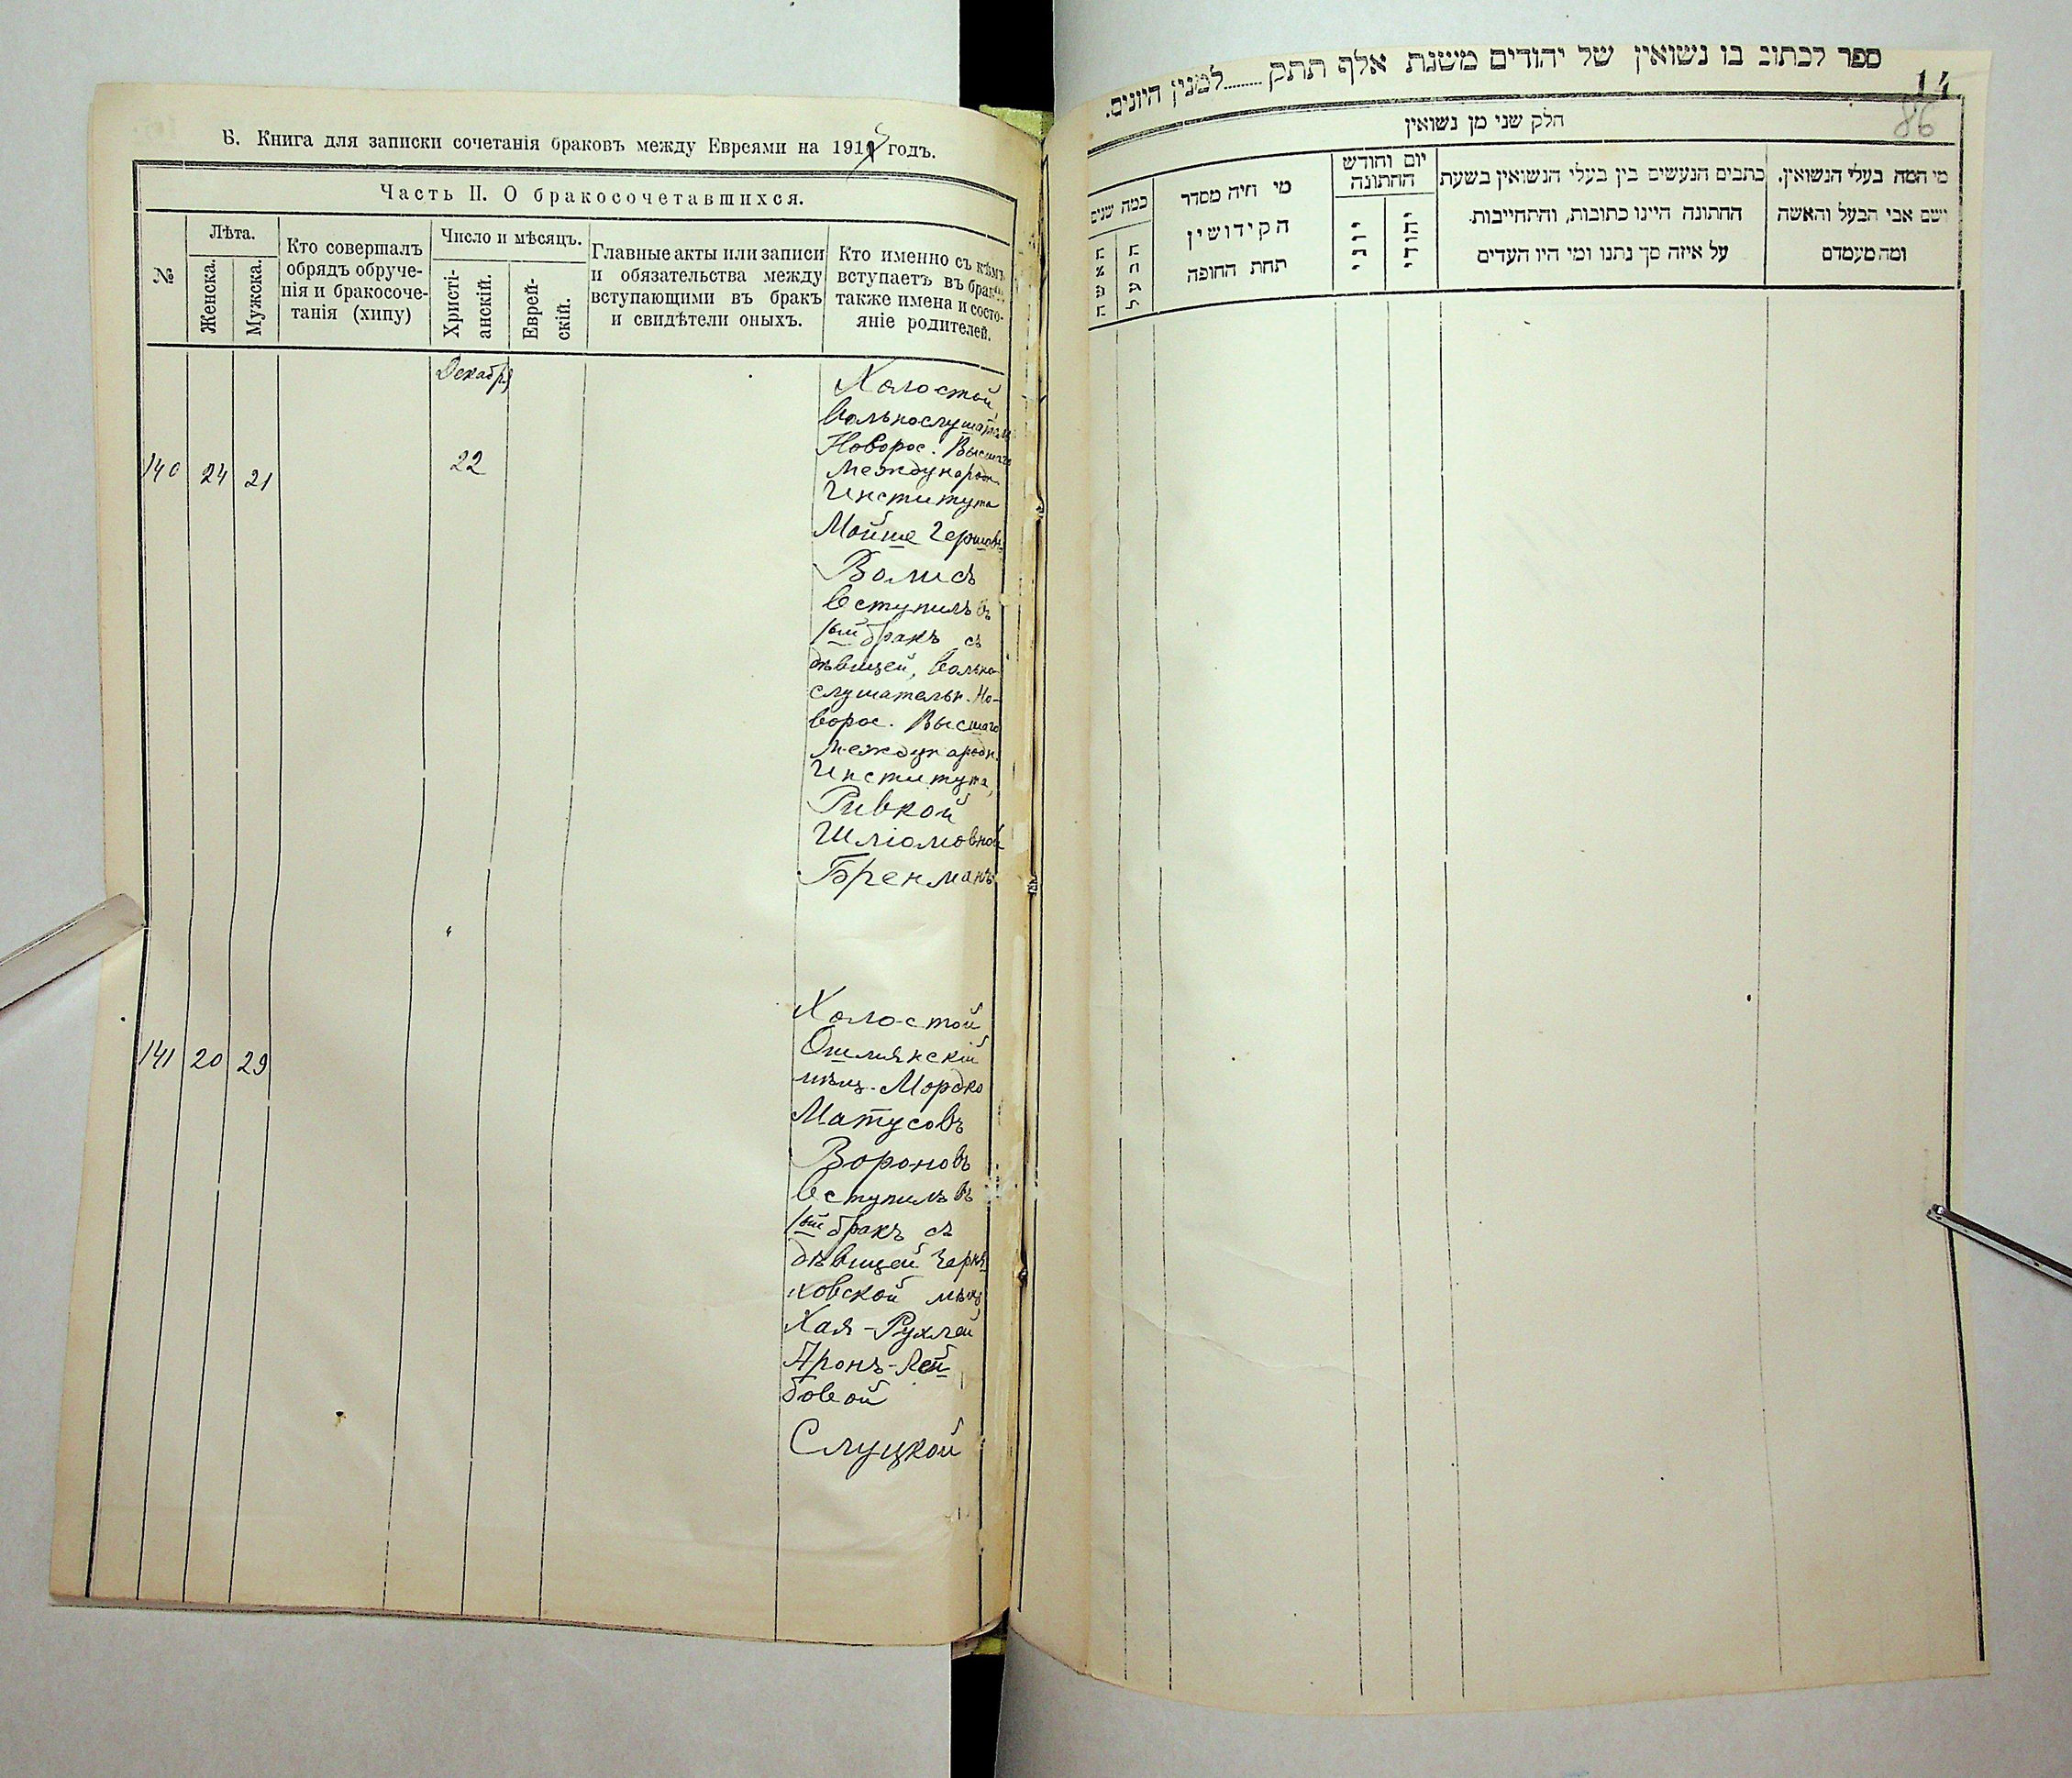 Б. Книга для записки сочетанія браковъ между Евреями на 191 годъ.
Часть II. О бракосочетавшихся.
№
Лѣта.
Женска.
Мужска.
Кто совершалъ
обрядъ обруче-
нія и бракосоче-
танія (хипу)
Число и мѣсяцъ.
Христі-
анскій.
Еврей-
скій.
Главные акты или записи
и обязательства между
вступающими въ бракъ
и свидѣтели оныхъ.
Кто именно съ кѣмъ
вступаетъ въ бракъ,
также имена и состо-
яніе родителей.
Декабря
140 24 21 22
Холостой,
вольнослушатель
Новорос. Высшаго
Международн.
Института
Мойше Гершовъ
Волисъ
вступилъ въ
1ый бракъ съ
дѣвицей, вольно-
слушательн. Но-
ворос. Высшаго
Международн.
Института,
Ривкой
Шліомовной
Бренманъ
141 20 29
Холостой
Ошмянскій
мѣщ. Мордко
Матусовъ
Вороновъ
вступилъ въ
1ый бракъ съ
дѣвицей Черня-
ховской мѣщ
Хая-Рухлей
Аронъ-Лей-
бовой
Слуцкой
ספר לכתוב בו נשואין של יהודים משנת אלף תתק........למנין היונים.
14
86
חלק שני מן נשואין
כמה שנים
האשה
הבעל
מי היה מסדר
הקידושין
תחת החופה
יום וחודש
החתונה
יוני
יהודי
כתבים הנעשים בין בעלי הנשואין בשעת
החתונה היינו כתובות, והתחייבות.
על איזה סך נתנו ומי היו העדים
מי המה בעלי הנשואין,
ושם אבי הבעל והאשה
ומה מעמדם